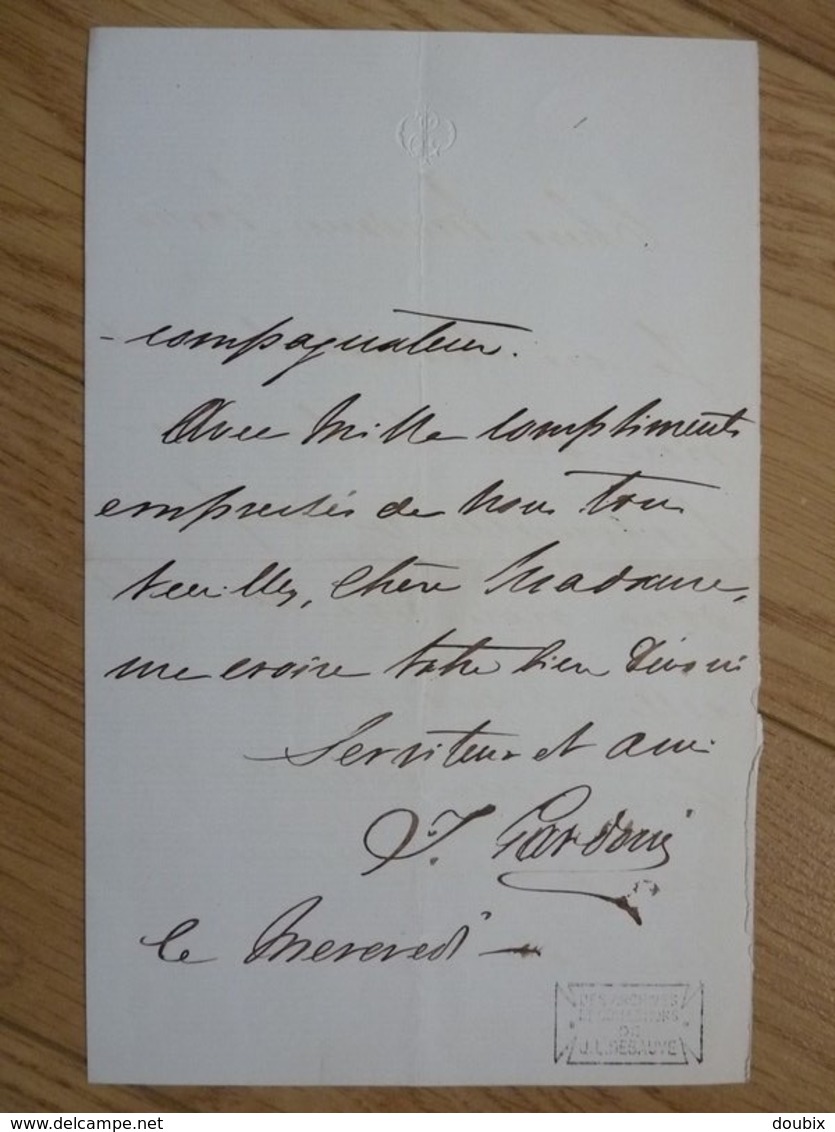 -compagnateur.
Avec Mille compliments
empressés de nous tous
veuillez, chère Madame,
me croire votre bien dévoué
Serviteur et ami
I. Gardoni
le Mercredi
DES ARCHIVES
ET COLLECTIONS
DE
J.L. DEBAUVE
www.delcampe.net
doubix